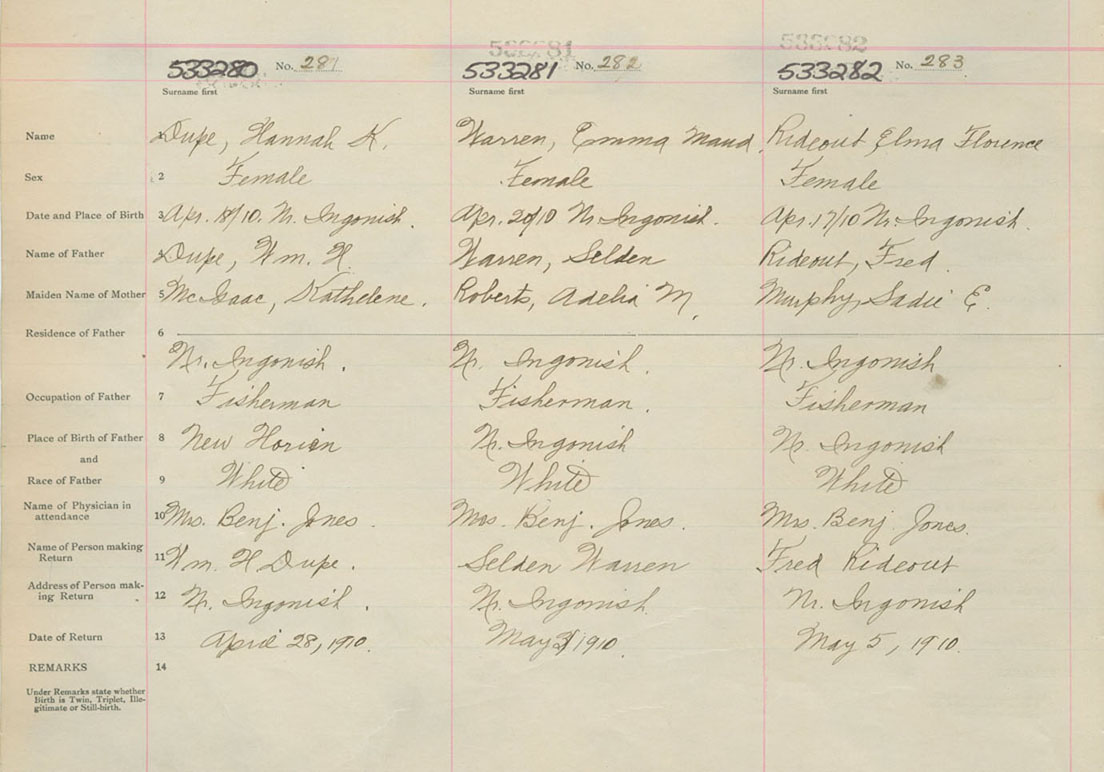 533281 533282
533280 No. 281 533281 No. 282 533282 No. 283
Surname first Surname first Surname first
Name 1 Dupe, Hannah K. Warren, Emma Maud Rideout Elma Florence
Sex 2 Female Female Female
Date and Place of Birth 3 Apr. 18/10. Nr. Ingonish. Apr. 20/10 Nr. Ingonish. Apr. 17/10 Nr. Ingonish.
Name of Father 4 Dupe, Wm. H. Warren, Selden Rideout, Fred.
Maiden Name of Mother 5 McIsaac, Kathelene. Roberts, Adelia M. Murphy, Sadie E.
Residence of Father 6
Nr. Ingonish. Nr. Ingonish. Nr. Ingonish
Occupation of Father 7 Fisherman Fisherman. Fisherman
Place of Birth of Father 8 New Nr. Ingonish Nr. Ingonish
and
Race of Father 9 White White White
Name of Physician in
attendance 10 Mrs. Benj. Jones. Mrs. Benj. Jones. Mrs. Benj. Jones.
Name of Person making
Return 11 Wm. H Dupe. Selden Warren Fred Rideout
Address of Person mak-
ing Return 12 Nr. Ingonish. Nr. Ingonish Nr. Ingonish
Date of Return 13 April 28, 1910. May 1910. May 5, 1910.
REMARKS 14
Under Remarks state whether
Birth is Twin, Triplet, Ille-
gitimate or Still-birth.